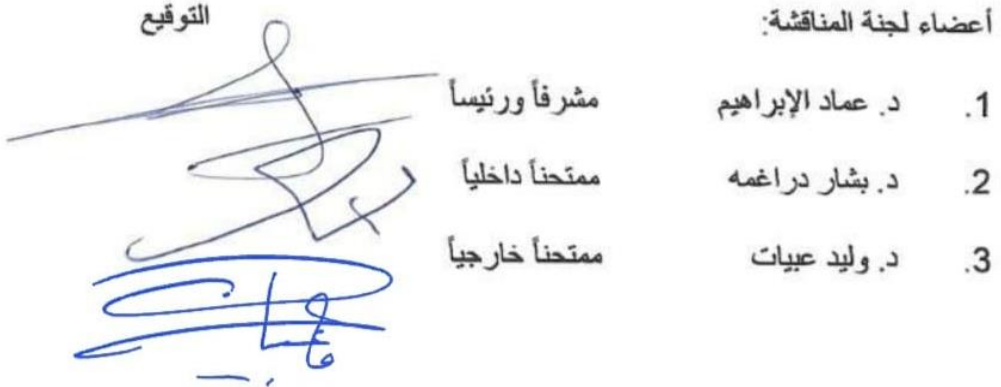 أعضاء لجنة المناقشة: التوقيع
1. د. عماد الإبراهيم مشرفاً ورئيساً
2. د. بشار دراغمه ممتحناً داخلياً
3. د. وليد عبيات ممتحناً خارجياً